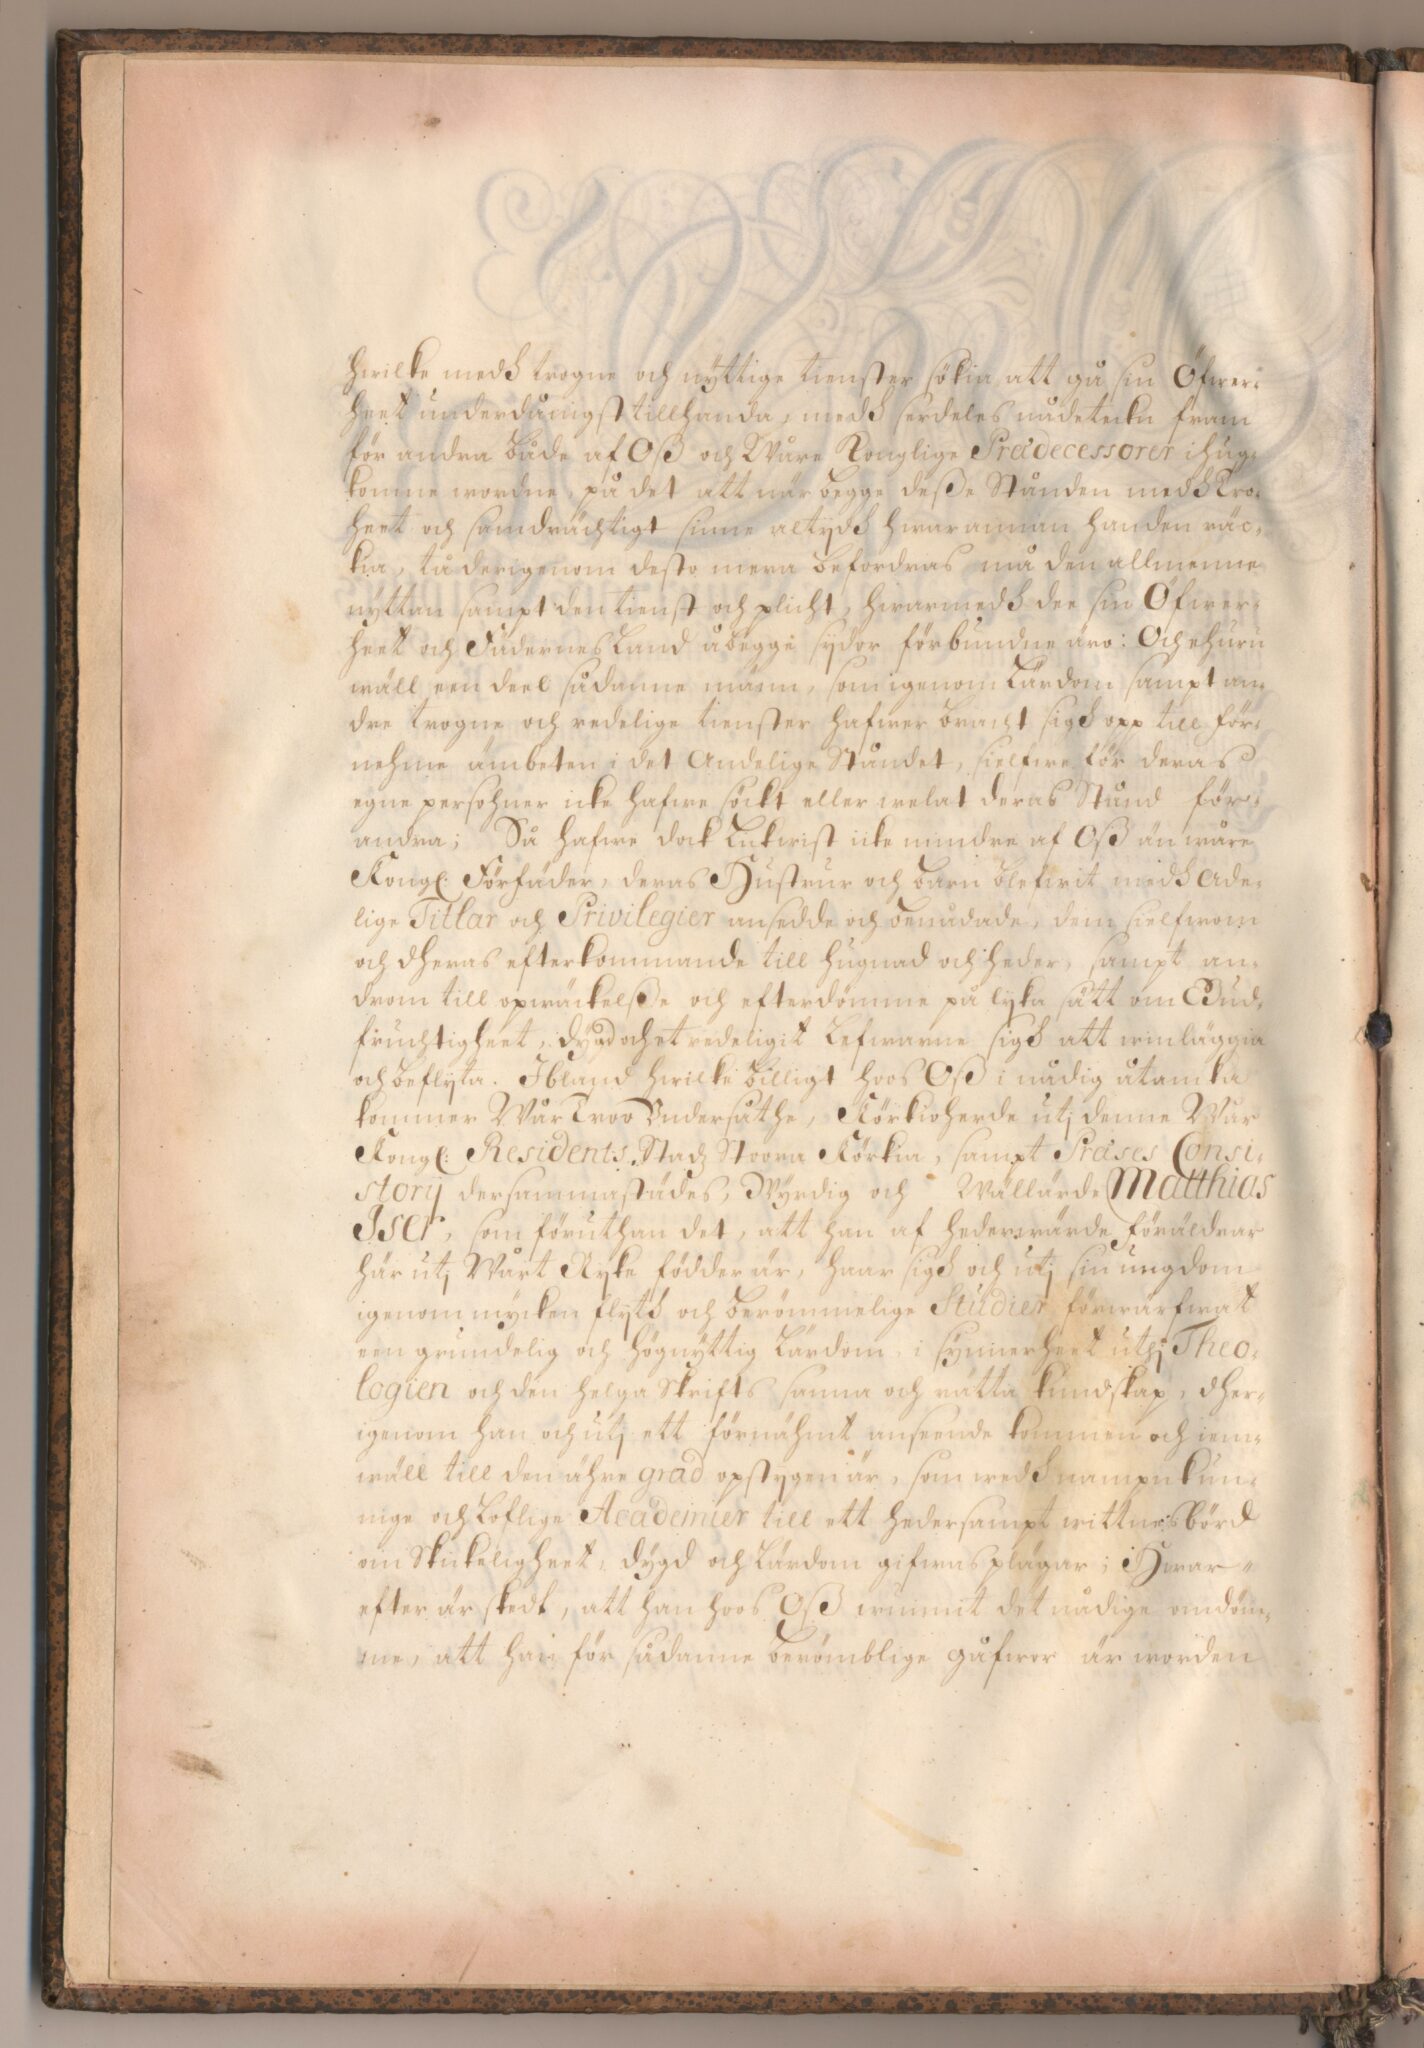 hwilke medh trogne och nyttige tienster sökia att gå sin Öfwer-
heet underdånigst tillhanda, medh serdeles nådeteckn fram
för andra både af Oß och Wåre Konglige Prædecessorer ihug-
komne wordne, på det att när begge deße Stånden medh Tro-
heet och samdrächtigt sinne altydh hwar annan handen räc-
kia, tå derigenom desto mera befordras må den allmenne
nyttan sampt den tienst och plicht, hwarmedh dee sin Öfwer-
heet och Fädernesland åbegge sydor förbundne äro: Och ehuru
wäll een deel sådanne männ, som igenom Lärdom sampt an-
dre trogne och redelige tienster hafwer bracht sigh opp till för-
nehme ämbeten i det Andelige Ståndet, sielfwe för deras
egne persohner icke hafwe sökt eller welat deras Stånd för-
andra; Så hafwe dock lickwist icke mindre af Oß än wåre
Kongl: Förfäder, deras Hustrur och barn blefwit medh Ade-
lige Titlar och Privilegier ansedde och benådade, dem sielfwom
och dheras efterkommande till hugnad och heder, sampt an-
drom till opwäckelße och efterdömme på lyka sätt om Gud-
fruchtigheet, dygd och et redeligit Lefwarne sigh att winläggia
och beflyta. Ibland hwilke billigt hoos Oß i nådig åtancka
kommer Wår Troo Undersåthe, Körkioherde utj denne Wår
Kongl: Residents Stadz Stoora Körkia, sampt Præses Consi-
storij dersammastädes, Wyrdig och Wällärde Matthias
Iser, som föruthan det, att han af hederwärde föräldrar
här utj Wårt Ryke födder är, haar sigh och utj sin ungdom
igenom mycken flyth och berömmelige Studier förwärfwat
een grundelig och högnyttig Lärdom, i synnerheet uthj Theo-
logien och den helga Skrifts sanna och rätta kundskap, dher-
igenom han och utj ett förnähmt anseende kommen och jem-
wäll till den ähre grad opstygen är, som wedh nampnkun-
nige och Loflige Academier till ett hedersampt wittnesbörd
om Skickeligheet, dygd och Lärdom gifwas plägar; Hwar-
efter är skedt, att han hoos Oß wunnit det nådige omdöm-
me, att han för sådanne berömblige gåfwor är worden